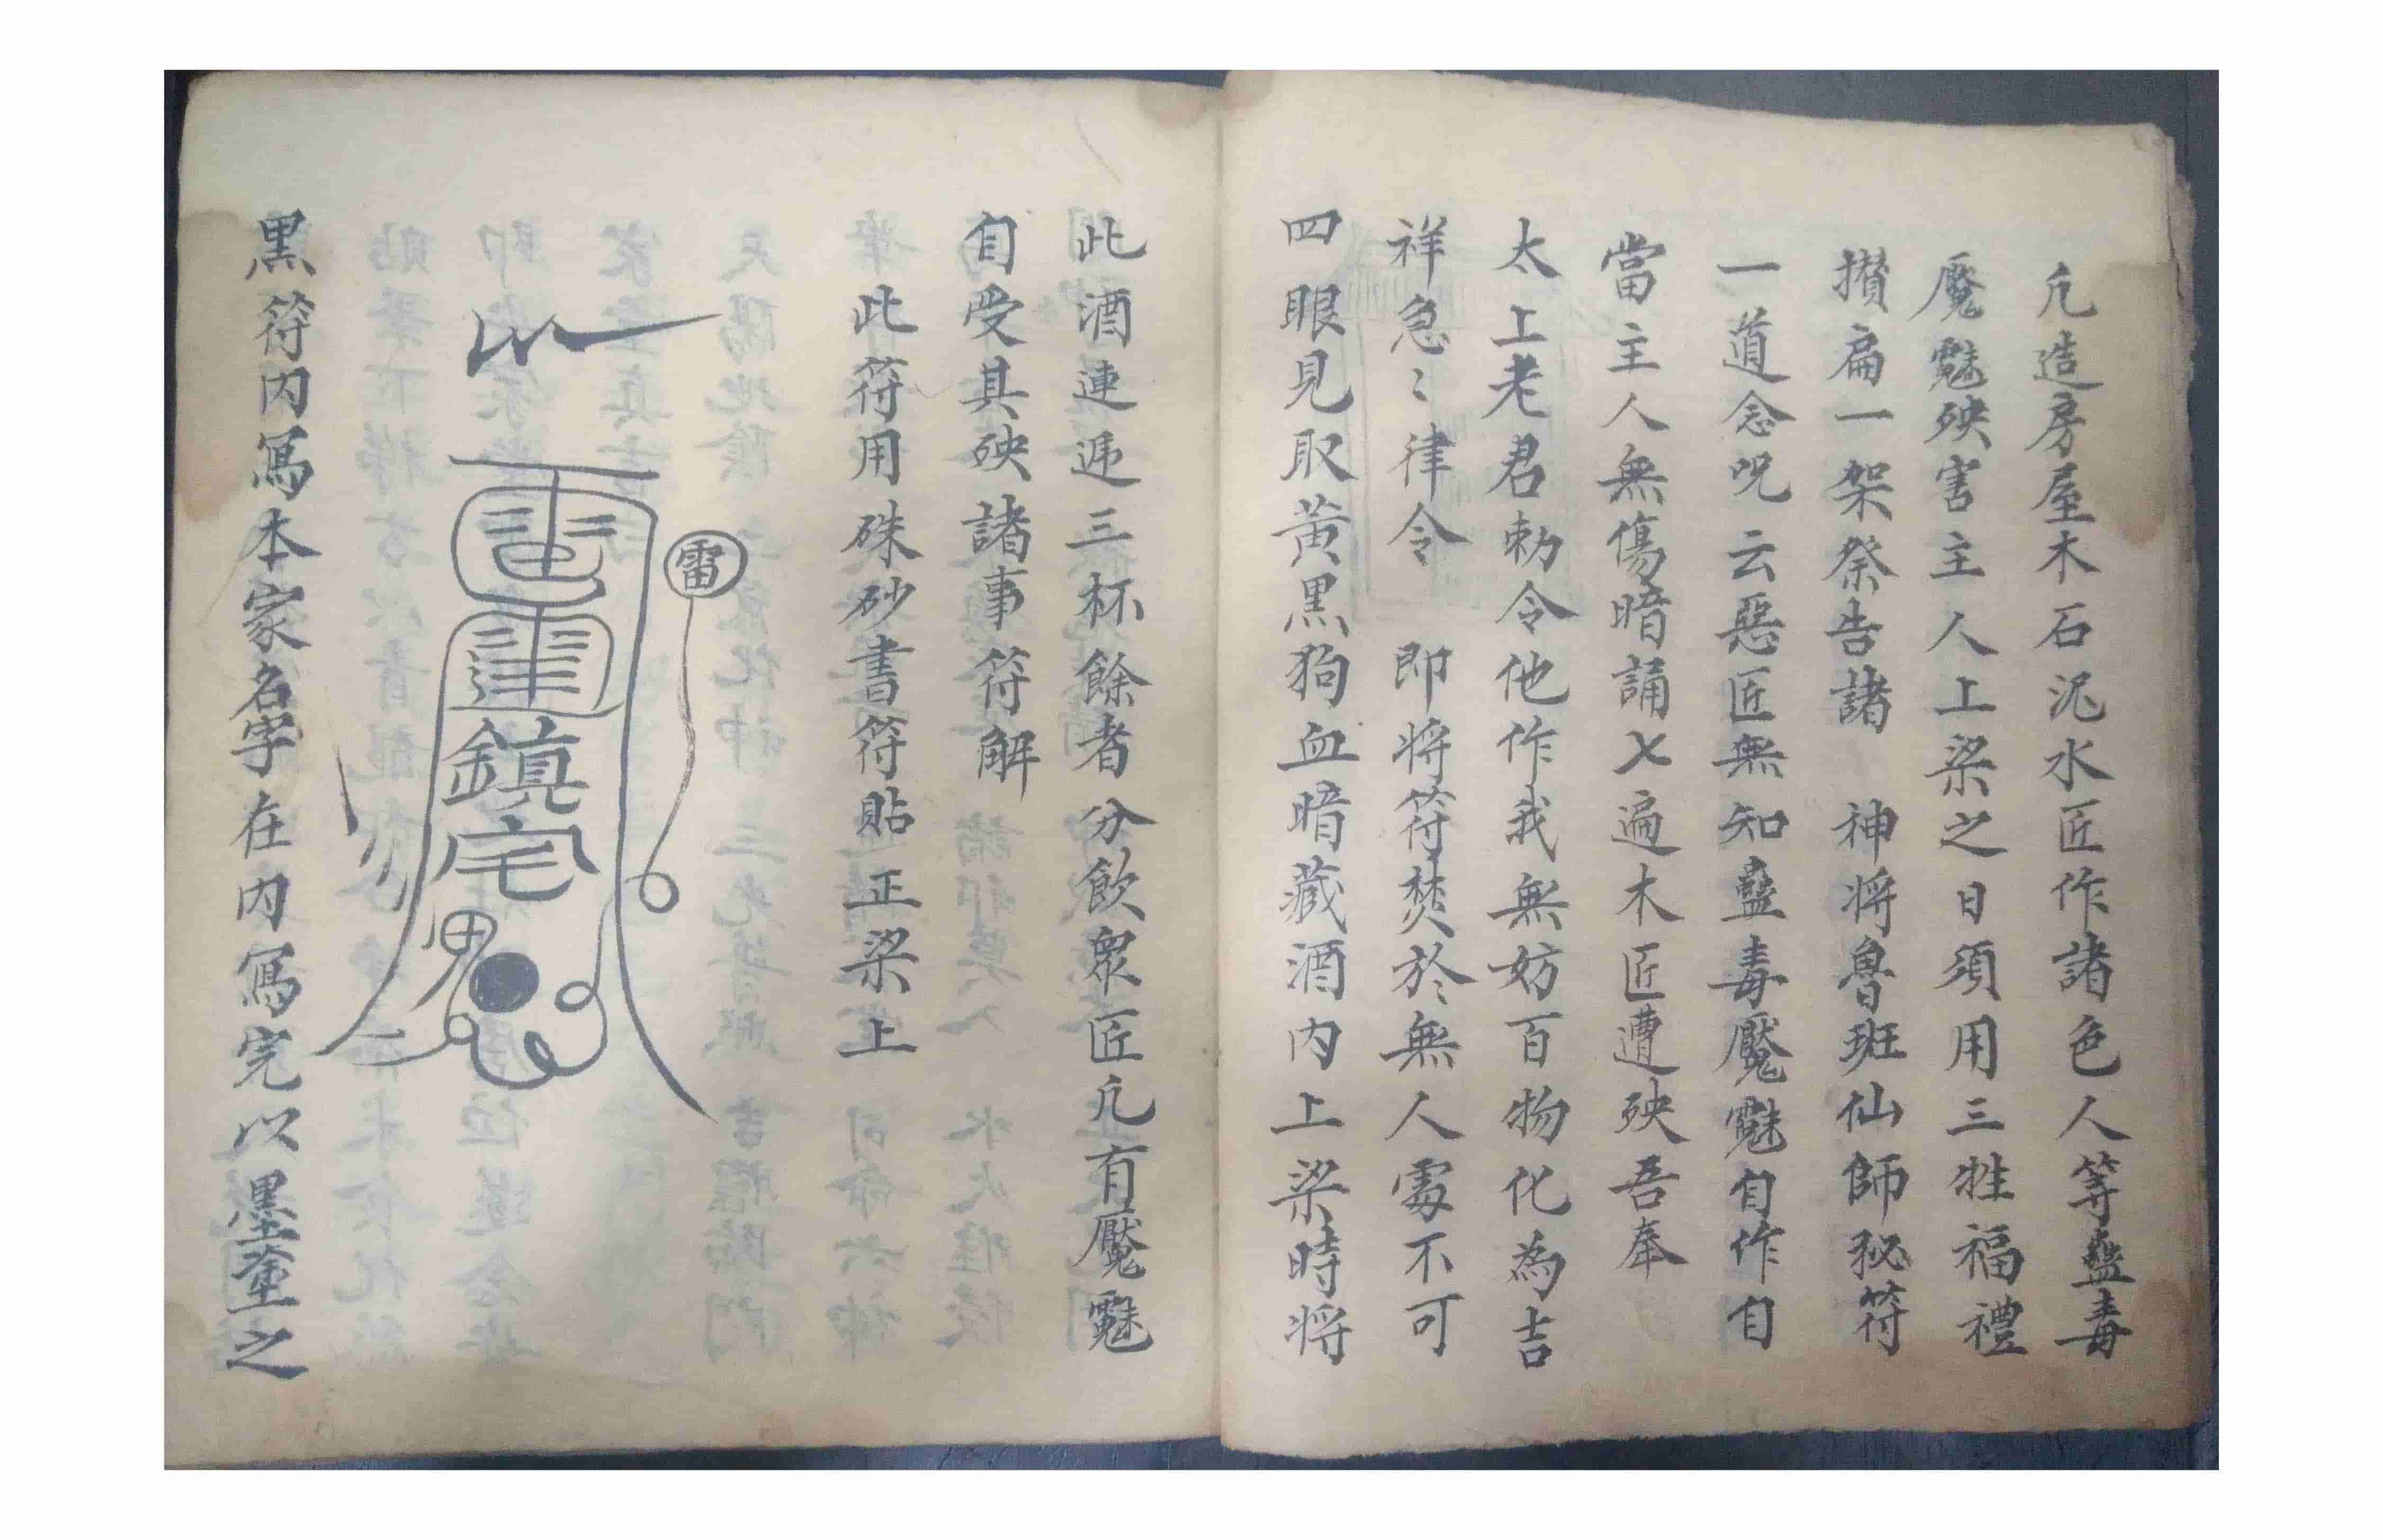 凢造房屋木石泥水匠作諸色人等蠱毒
魘魅殃害主人上梁之日須用三牲福禮
攅扁一架祭告諸 神将魯班仙師秘符
一道念呪云惡匠無知蠱毒魘魅自作自
當主人無傷暗誦七遍木匠遭殃吾奉
太上老君勅令他作我無妨百物化為吉
祥急〻律令 即将符焚於無人處不可
四眼見取黃黑狗血暗藏酒内上梁時将
此酒連逓三杯餘者分飲衆匠凢有魘魅
自受其殃諸事符解
此符用硃砂書符貼正梁上
雷
鎮宅
鬼
黒符内寫本家名字在内寫完以墨塗之